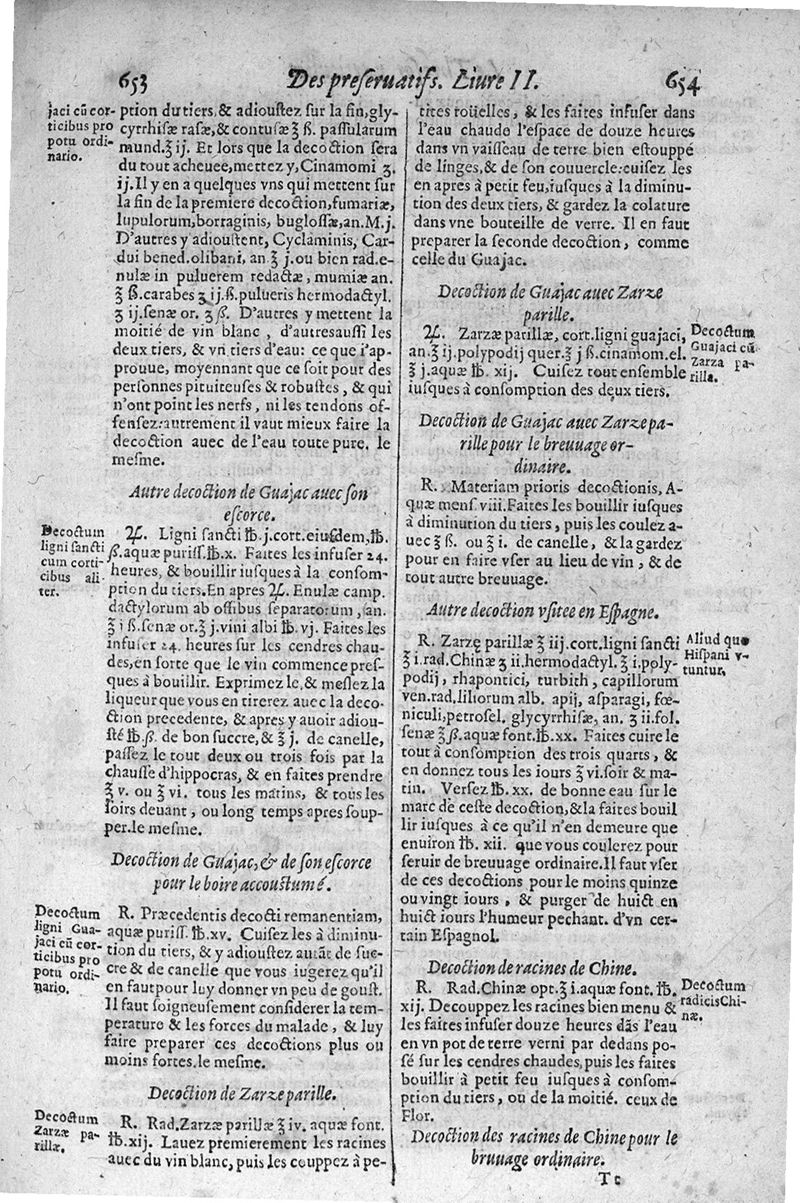 653
Des preseruatifs. Liure II.
654
jaci cū cor-
ticibus pro
potu ordi-
nario.
ption du tiers, & adioustez sur la fin, gly-
cyrrhisæ rasæ, & contusæ ℥ ß. passularum
mund. ℥ ij. Et lors que la decoction sera
du tout acheuee, mettez y, Cinamomi ʒ.
ij. Il y en a quelques vns qui mettent sur
la fin de la premiere decoction, fumariæ,
lupulorum, borraginis, buglossæ, an. M. j.
D'autres y adioustent, Cyclaminis, Car-
dui bened. olibani, an. ʒ j. ou bien rad. e-
nulæ in puluerem redactæ, mumiæ an.
℥ ß. carabes ʒ ij. ß. pulueris hermodactyl.
ʒ ij. senæ or. ʒ ß. D'autres y mettent la
moitié de vin blanc, d'autres aussi les
deux tiers, & vn tiers d'eau: ce que i'ap-
prouue, moyennant que ce soit pour des
personnes pituiteuses & robustes, & qui
n'ont point les nerfs, ni les tendons of-
fensez: autrement il vaut mieux faire la
decoction auec de l'eau toute pure. le
mesme.
Autre decoction de Guajac auec son
escorce.
Decoctum
ligni sancti
cum corti-
cibus ali-
ter.
♃. Ligni sancti ℔. j. cort. eiusdem, ℔.
ß. aquæ puriss. ℔. x. Faites les infuser 24.
heures, & bouillir iusques à la consom-
ption du tiers. En apres ♃. Enulæ camp.
dactylorum ab ossibus separatorum, an.
℥ i ß. senæ or. ℥ j. vini albi ℔. vj. Faites les
infuser 24. heures sur les cendres chau-
des, en sorte que le vin commence pres-
ques à bouillir. Exprimez le, & meslez la
liqueur que vous en tirerez auec la deco-
ction precedente, & apres y auoir adiou-
sté ℔. ß. de bon succre, & ℥ j. de canelle,
passez le tout deux ou trois fois par la
chausse d'hippocras, & en faites prendre
℥ v. ou ℥ vi. tous les matins, & tous les
soirs deuant, ou long temps apres soup-
per. le mesme.
Decoction de Guajac, & de son escorce
pour le boire accoustumé.
Decoctum
ligni Gua-
jaci cū cor-
ticibus pro
potu ordi-
nario.
R. Præcedentis decocti remanentiam,
aquæ puriss. ℔. xv. Cuisez les à diminu-
tion du tiers, & y adioustez autāt de suc-
cre & de canelle que vous iugerez qu'il
en faut pour luy donner vn peu de goust.
Il faut soigneusement considerer la tem-
perature & les forces du malade, & luy
faire preparer ces decoctions plus ou
moins fortes. le mesme.
Decoction de Zarzeparille.
Decoctum
Zarzæ pa-
rillæ.
R. Rad. Zarzæ parillæ ℥ iv. aquæ font.
℔. xij. Lauez premierement les racines
auec du vin blanc, puis les couppez à pe-
tites roüelles, & les faites infuser dans
l'eau chaude l'espace de douze heures
dans vn vaisseau de terre bien estouppé
de linges, & de son couuercle: cuisez les
en apres à petit feu, iusques à la diminu-
tion des deux tiers, & gardez la colature
dans vne bouteille de verre. Il en faut
preparer la seconde decoction, comme
celle du Guajac.
Decoction de Guajac auec Zarze
parille.
♃. Zarzæ parillæ, cort. ligni guajaci,
an. ℥ ij. polypodij quer. ℥ j ß. cinamom. el.
℥ j. aquæ ℔. xij. Cuisez tout ensemble
iusques à consomption des deux tiers.
Decoctum
Guajaci cū
Zarza pa-
rilla.
Decoction de Guajac auec Zarzepa-
rille pour le breuuage or-
dinaire.
R. Materiam prioris decoctionis, A-
quæ mens. viii. Faites les bouillir iusques
à diminution du tiers, puis les coulez a-
uec ℥ ß. ou ℥ i. de canelle, & la gardez
pour en faire vser au lieu de vin, & de
tout autre breuuage.
Autre decoction vsitee en Espagne.
R. Zarzę parillæ ℥ iij. cort. ligni sancti
℥ i. rad. Chinæ ʒ ii. hermodactyl. ℥ i. poly-
podij, rhapontici, turbith, capillorum
ven. rad. liliorum alb. apij, asparagi, fœ-
niculi, petrosel. glycyrrhisæ, an. ʒ ii. fol.
senæ ℥ ß. aquæ font. ℔. xx. Faites cuire le
tout à consomption des trois quarts, &
en donnez tous les iours ℥ vi. soir & ma-
tin. Versez ℔. xx. de bonne eau sur le
marc de ceste decoction, & la faites bouil
lir iusques à ce qu'il n'en demeure que
enuiron ℔. xii. que vous coulerez pour
seruir de breuuage ordinaire. Il faut vser
de ces decoctions pour le moins quinze
ou vingt iours, & purger de huict en
huict iours l'humeur pechant. d'vn cer-
tain Espagnol.
Aliud quo
Hispani v-
tuntur.
Decoction de racines de Chine.
R. Rad. Chinæ opt. ℥ i. aquæ font. ℔.
xij. Decouppez les racines bien menu &
les faites infuser douze heures dās l'eau
en vn pot de terre verni par dedans po-
sé sur les cendres chaudes, puis les faites
bouillir à petit feu iusques à consom-
ption du tiers, ou de la moitié. ceux de
Flor.
Decoctum
radicis Chi-
næ.
Decoction des racines de Chine pour le
bruuage ordinaire.
Tt